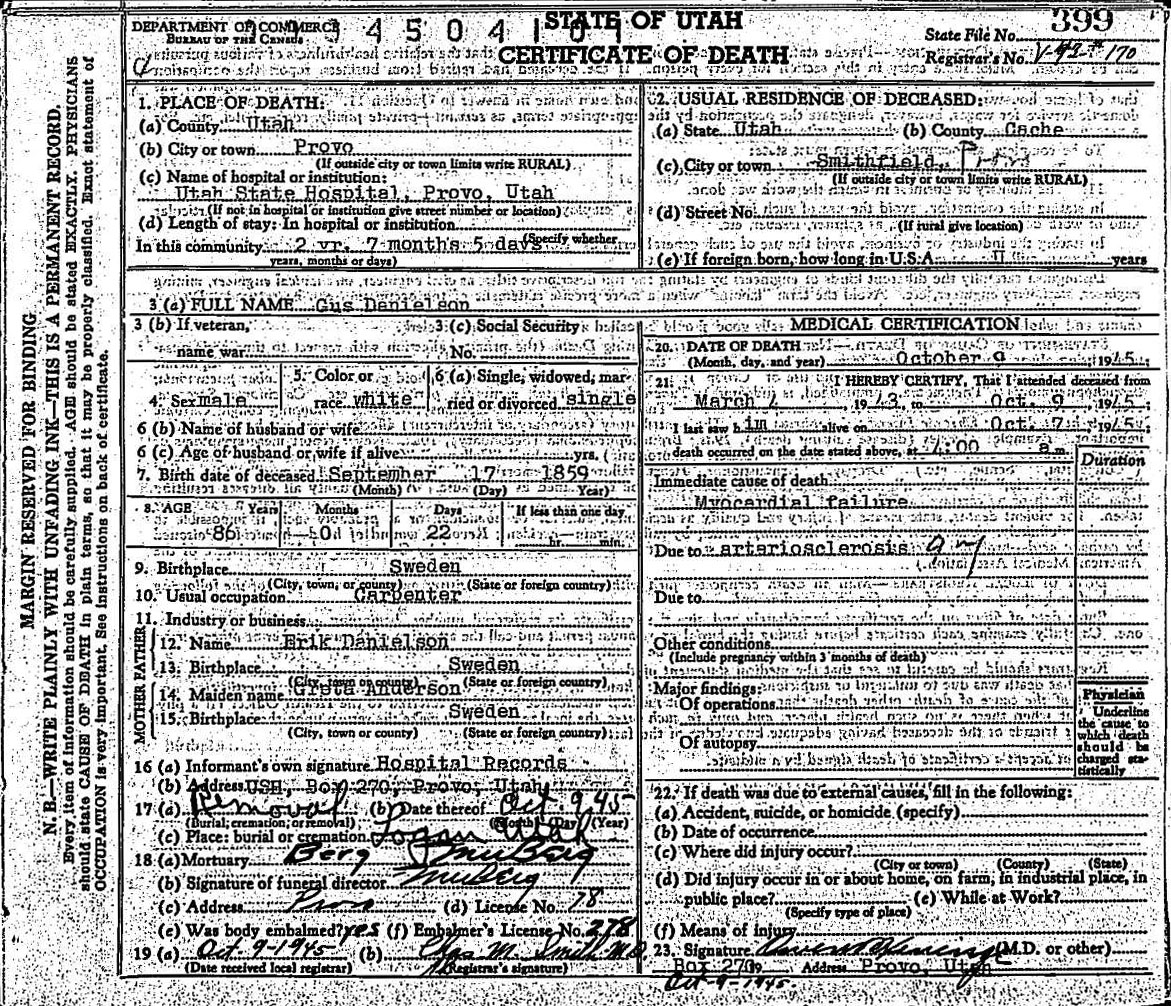 DEPARTMENT OF COMMERCE
BUREAU OF THE CENSUS
4504101
STATE OF UTAH
CERTIFICATE OF DEATH
State File No. 399
Registrar's No. 170
MARGIN RESERVED FOR BINDING
N. B.—WRITE PLAINLY WITH UNFADING INK—THIS IS A PERMANENT RECORD.
Every item of information should be carefully supplied. AGE should be stated EXACTLY. PHYSICIANS
should state CAUSE OF DEATH in plain terms, so that it may be properly classified. Exact statement of
OCCUPATION is very important. See instructions on back of certificate.
1. PLACE OF DEATH:
(a) County Utah
(b) City or town Provo
(If outside city or town limits write RURAL)
(c) Name of hospital or institution:
Utah State Hospital, Provo, Utah
(If not in hospital or institution give street number or location)
(d) Length of stay: In hospital or institution
(Specify whether
In this community 2 yr. 7 months 5 days
years, months or days)
2. USUAL RESIDENCE OF DECEASED:
(a) State Utah (b) County Cache
(c) City or town Smithfield,
(If outside city or town limits write RURAL)
(d) Street No.
(If rural give location)
(e) If foreign born, how long in U.S.A. years
3 (a) FULL NAME Gus Danielson
3 (b) If veteran,
name war
3 (c) Social Security
No.
4. Sex male
5. Color or
race white
6 (a) Single, widowed, mar-
ried or divorced single
6 (b) Name of husband or wife
6 (c) Age of husband or wife if alive yrs.
7. Birth date of deceased September 17 1859
(Month) (Day) Year)
8. AGE Years Months Days If less than one day
86 0 22 hr. min.
9. Birthplace Sweden
(City, town, or county) (State or foreign country)
10. Usual occupation Carpenter
11. Industry or business
FATHER
12. Name Erik Danielson
13. Birthplace Sweden
(City, town or county) (State or foreign country)
MOTHER
14. Maiden name Greta Anderson
15. Birthplace Sweden
(City, town or county) (State or foreign country)
16 (a) Informant's own signature Hospital Records
(b) Address USH, Box 270, Provo, Utah
17 (a) Removal (b) Date thereof Oct 9 45
(Burial, cremation, or removal) (Month) (Day) (Year)
(c) Place: burial or cremation Logan Utah
18 (a) Mortuary Berg
(b) Signature of funeral director
(c) Address Provo (d) License No. 78
(e) Was body embalmed? yes (f) Embalmer's License No. 278
19 (a) Oct-9-1945 (b) Chas M. Smith M.D.
(Date received local registrar) (Registrar's signature)
MEDICAL CERTIFICATION
20. DATE OF DEATH
(Month, day, and year) October 9, 1945
21. I HEREBY CERTIFY, That I attended deceased from
March 4 1943, to Oct. 9 1945;
I last saw him alive on Oct. 7 1945;
death occurred on the date stated above, at :00 a m.
Duration
Immediate cause of death
Myocardial failure
Due to arteriosclerosis
Due to
Other conditions
(Include pregnancy within 3 months of death)
Major findings:
Of operations
Of autopsy
Physician
Underline
the cause to
which death
should be
charged sta-
tistically
22. If death was due to external causes, fill in the following:
(a) Accident, suicide, or homicide (specify)
(b) Date of occurrence
(c) Where did injury occur?
(City or town) (County) (State)
(d) Did injury occur in or about home, on farm, in industrial place, in
public place? (e) While at Work?
(Specify type of place)
(f) Means of injury
23. Signature (M.D. or other)
Box 270 Address Provo, Utah
Oct-9-1945